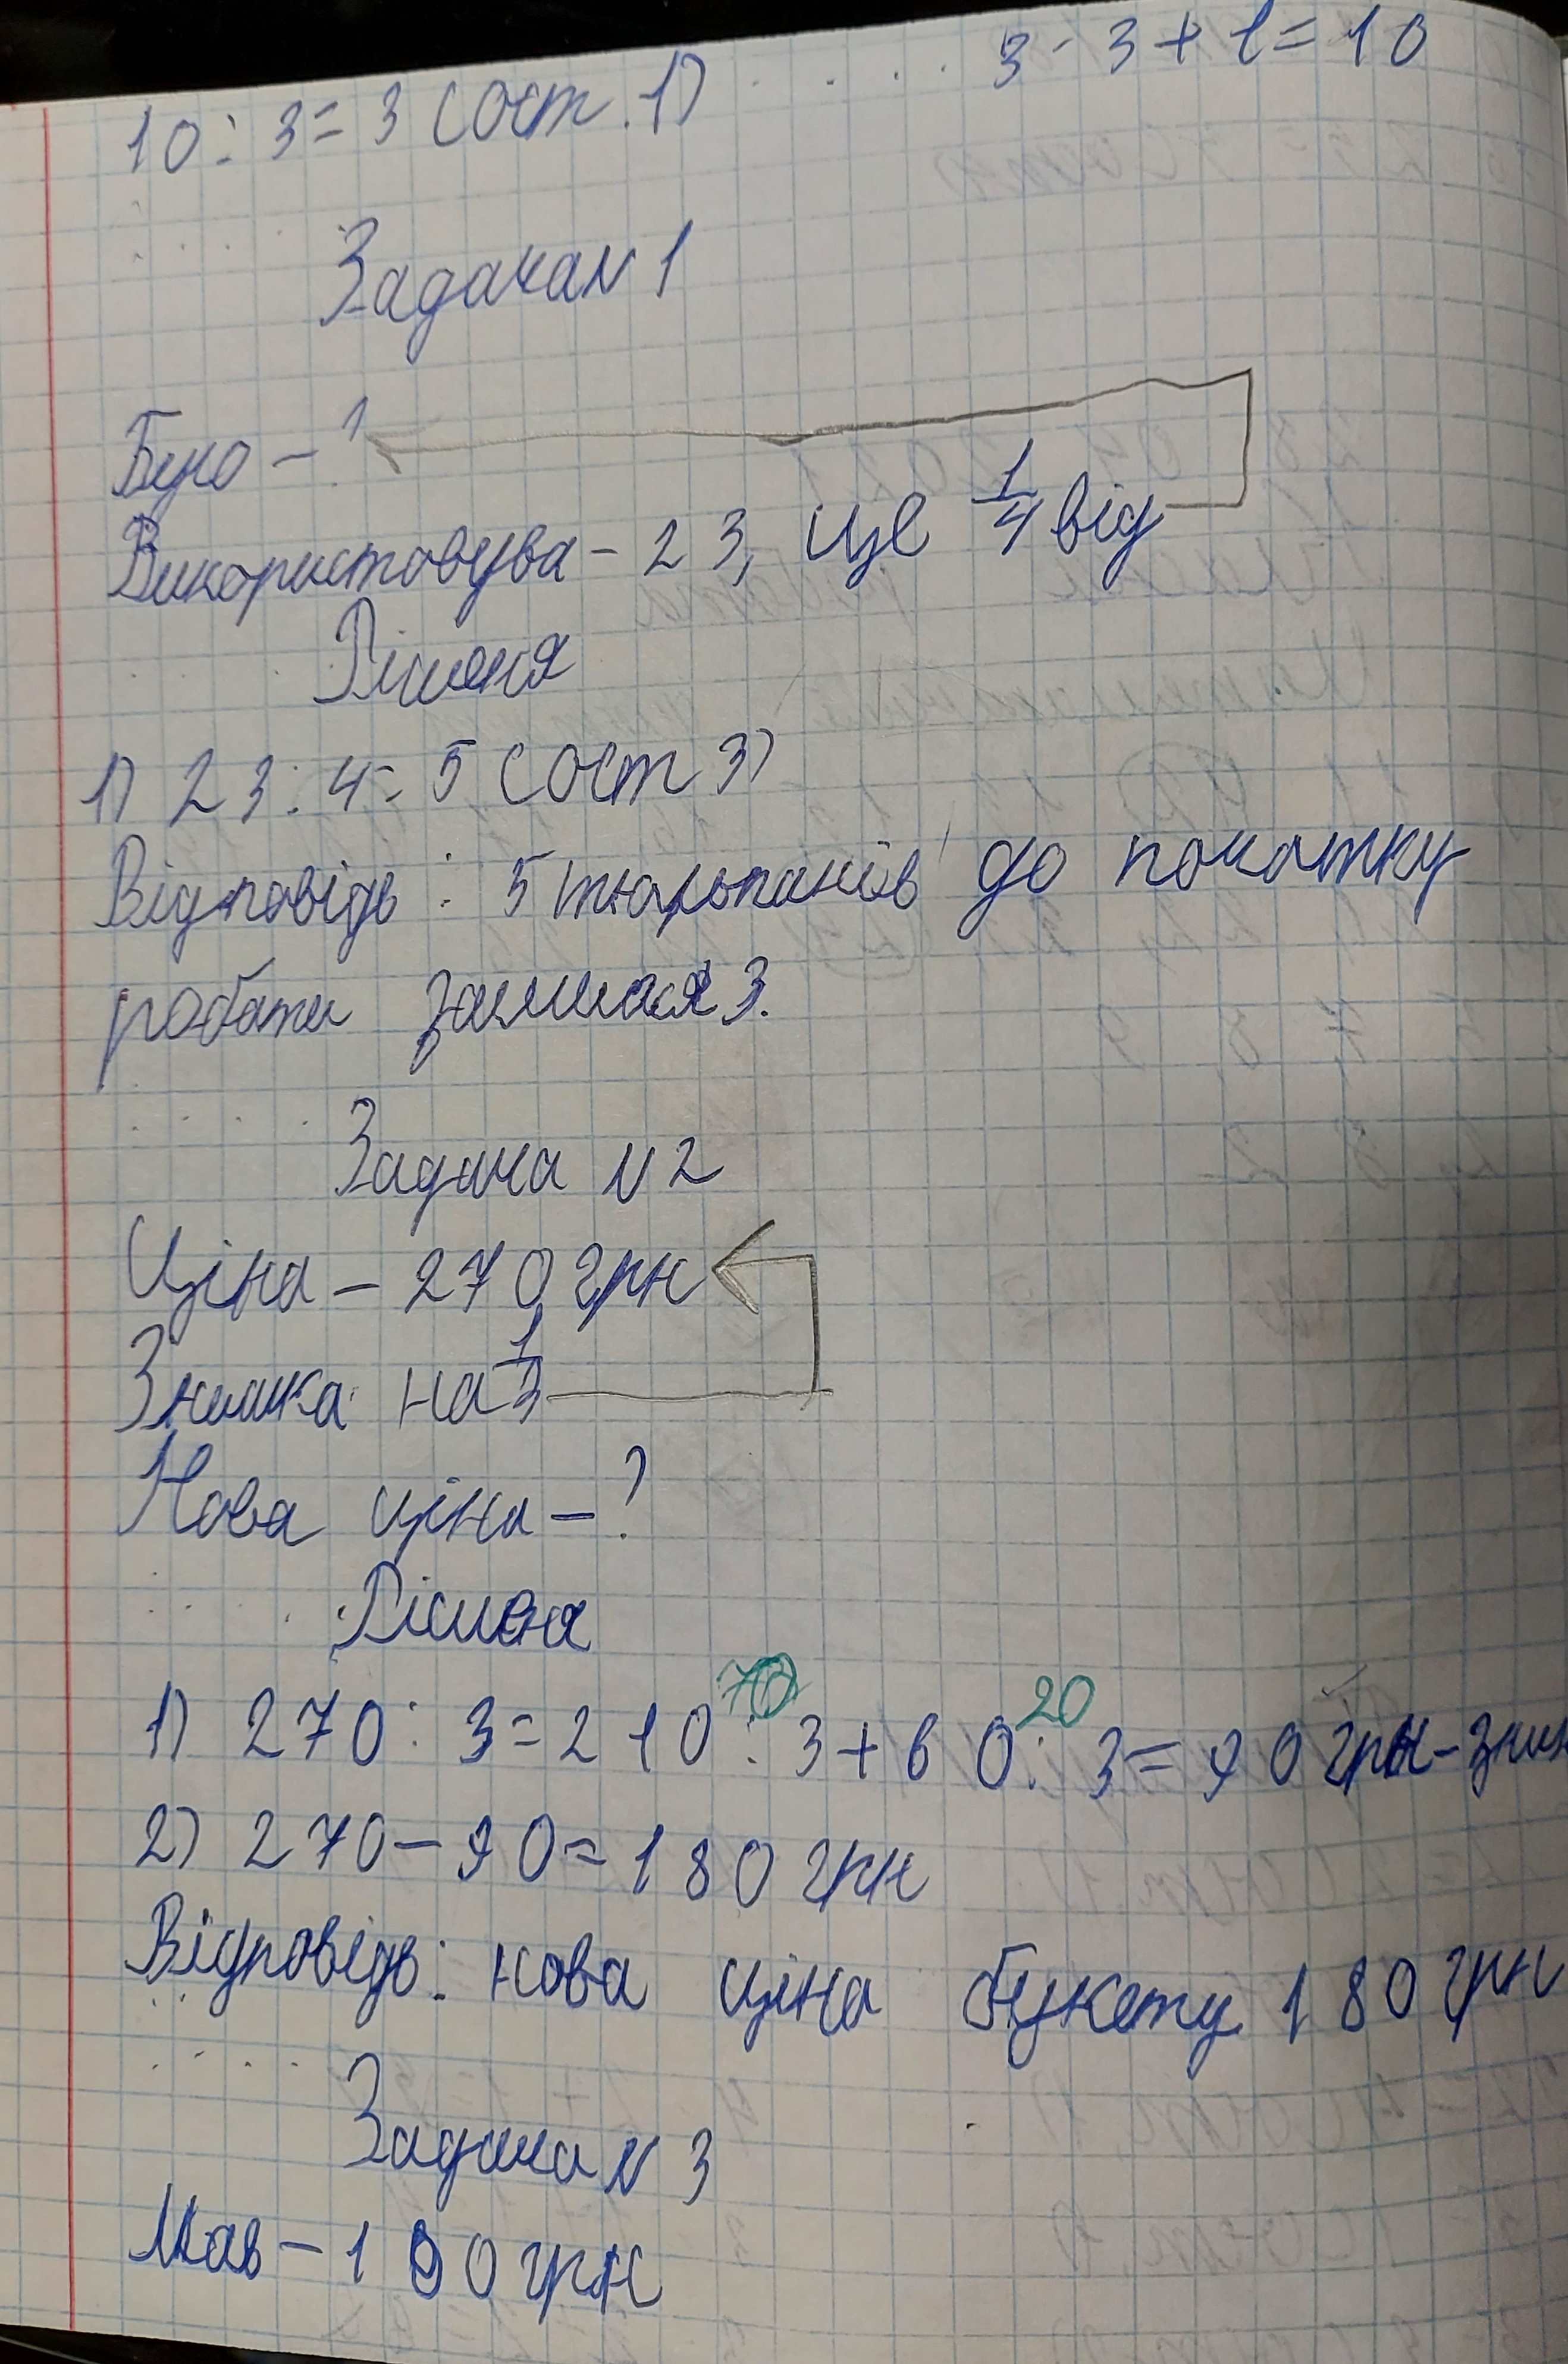 10 : 3 = 3 (ост. 1) 3 · 3 + 1 = 10
Задача N 1
Було - ?
Використовува - 23, це 1/4 від
Рішеня
1) 23 : 4 = 5 (ост 3)
Відповідь : 5 тюльпанів до початку
работи залишася 3.
Задача N 2
Ціна - 270 грн
Знишка на 1/3
Нова ціна - ?
Рішеня
70 20
1) 270 : 3 = 210 : 3 + 60 : 3 = 90 грн - зни
2) 270 - 90 = 180 грн
Відповідь : нова ціна букету 180 грн
Задача N 3
Мав - 190 грн